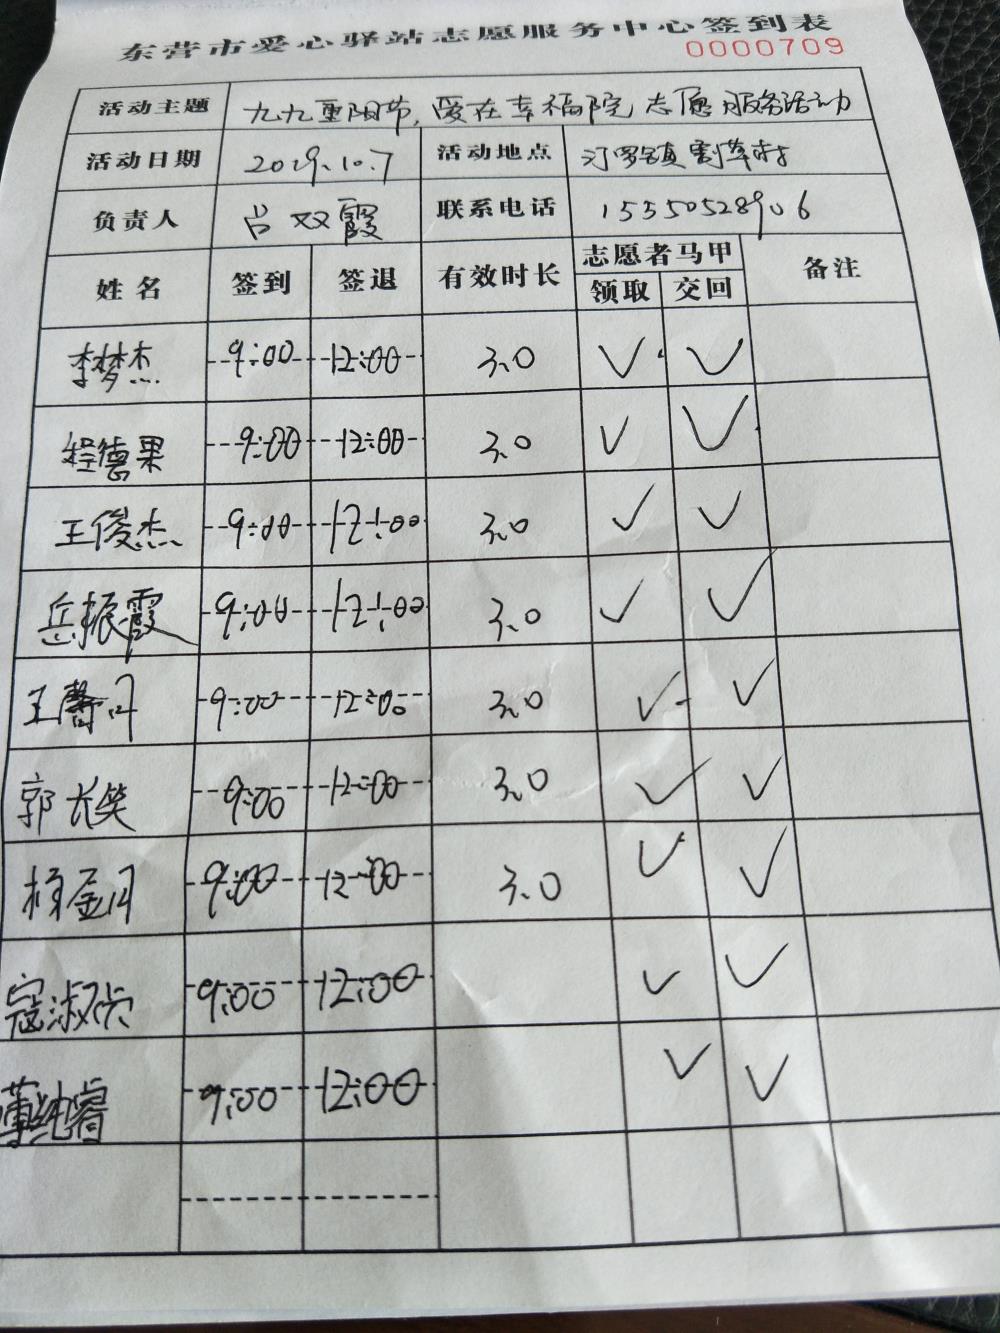 东营市爱心驿站志愿服务中心签到表
0000709
活动主题 九九重阳节,爱在幸福院志愿服务活动
活动日期 2019.10.7 活动地点 汀罗镇割草村
负责人 吕双霞 联系电话 15550528906
姓名 签到 签退 有效时长 志愿者马甲 备注
领取 交回
李梦杰 9:00 12:00 3.0 ✓ ✓
程德果 9:00 12:00 3.0 ✓ ✓
王俊杰 9:00 12:00 3.0 ✓ ✓
岳振霞 9:00 12:00 3.0 ✓ ✓
王 9:00 12:00 3.0 ✓ ✓
郭长笑 9:00 12:00 3.0 ✓ ✓
杨金月 9:00 12:00 3.0 ✓ ✓
寇淑 9:00 12:00 ✓ ✓
薄纯睿 9:00 12:00 ✓ ✓